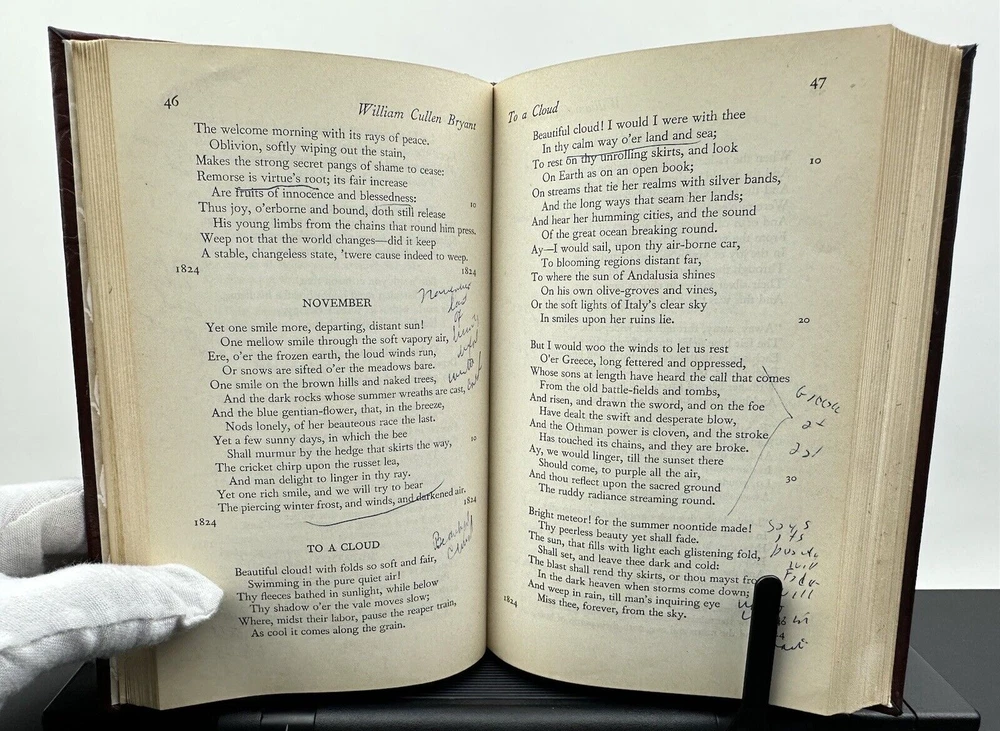 46
William Cullen Bryant
The welcome morning with its rays of peace.
Oblivion, softly wiping out the stain,
Makes the strong secret pangs of shame to cease:
Remorse is virtue's root; its fair increase
Are fruits of innocence and blessedness:
10
Thus joy, o'erborne and bound, doth still release
His young limbs from the chains that round him press.
Weep not that the world changes—did it keep
A stable, changeless state, 'twere cause indeed to weep.
1824
1824
NOVEMBER
November
last
of
Yet one smile more, departing, distant sun!
One mellow smile through the soft vapory air,
Ere, o'er the frozen earth, the loud winds run,
Or snows are sifted o'er the meadows bare.
One smile on the brown hills and naked trees,
And the dark rocks whose summer wreaths are cast,
And the blue gentian-flower, that, in the breeze,
Nods lonely, of her beauteous race the last.
Yet a few sunny days, in which the bee
10
Shall murmur by the hedge that skirts the way,
The cricket chirp upon the russet lea,
And man delight to linger in thy ray.
Yet one rich smile, and we will try to bear
The piercing winter frost, and winds, and darkened air.
1824
1824
TO A CLOUD
Beautiful
Cloud
Beautiful cloud! with folds so soft and fair,
Swimming in the pure quiet air!
Thy fleeces bathed in sunlight, while below
Thy shadow o'er the vale moves slow;
Where, midst their labor, pause the reaper train,
As cool it comes along the grain.
To a Cloud
47
Beautiful cloud! I would I were with thee
In thy calm way o'er land and sea;
To rest on thy unrolling skirts, and look
10
On Earth as on an open book;
On streams that tie her realms with silver bands,
And the long ways that seam her lands;
And hear her humming cities, and the sound
Of the great ocean breaking round.
Ay—I would sail, upon thy air-borne car,
To blooming regions distant far,
To where the sun of Andalusia shines
On his own olive-groves and vines,
Or the soft lights of Italy's clear sky
In smiles upon her ruins lie.
20
But I would woo the winds to let us rest
O'er Greece, long fettered and oppressed,
Whose sons at length have heard the call that comes
From the old battle-fields and tombs,
And risen, and drawn the sword, and on the foe
Have dealt the swift and desperate blow,
And the Othman power is cloven, and the stroke
Has touched its chains, and they are broke.
Ay, we would linger, till the sunset there
Should come, to purple all the air,
30
And thou reflect upon the sacred ground
The ruddy radiance streaming round.
Greece
Bright meteor! for the summer noontide made!
Thy peerless beauty yet shall fade.
The sun, that fills with light each glistening fold,
Shall set, and leave thee dark and cold:
The blast shall rend thy skirts, or thou mayst
In the dark heaven when storms come down;
And weep in rain, till man's inquiring eye
Miss thee, forever, from the sky.
1824
Says
its
will